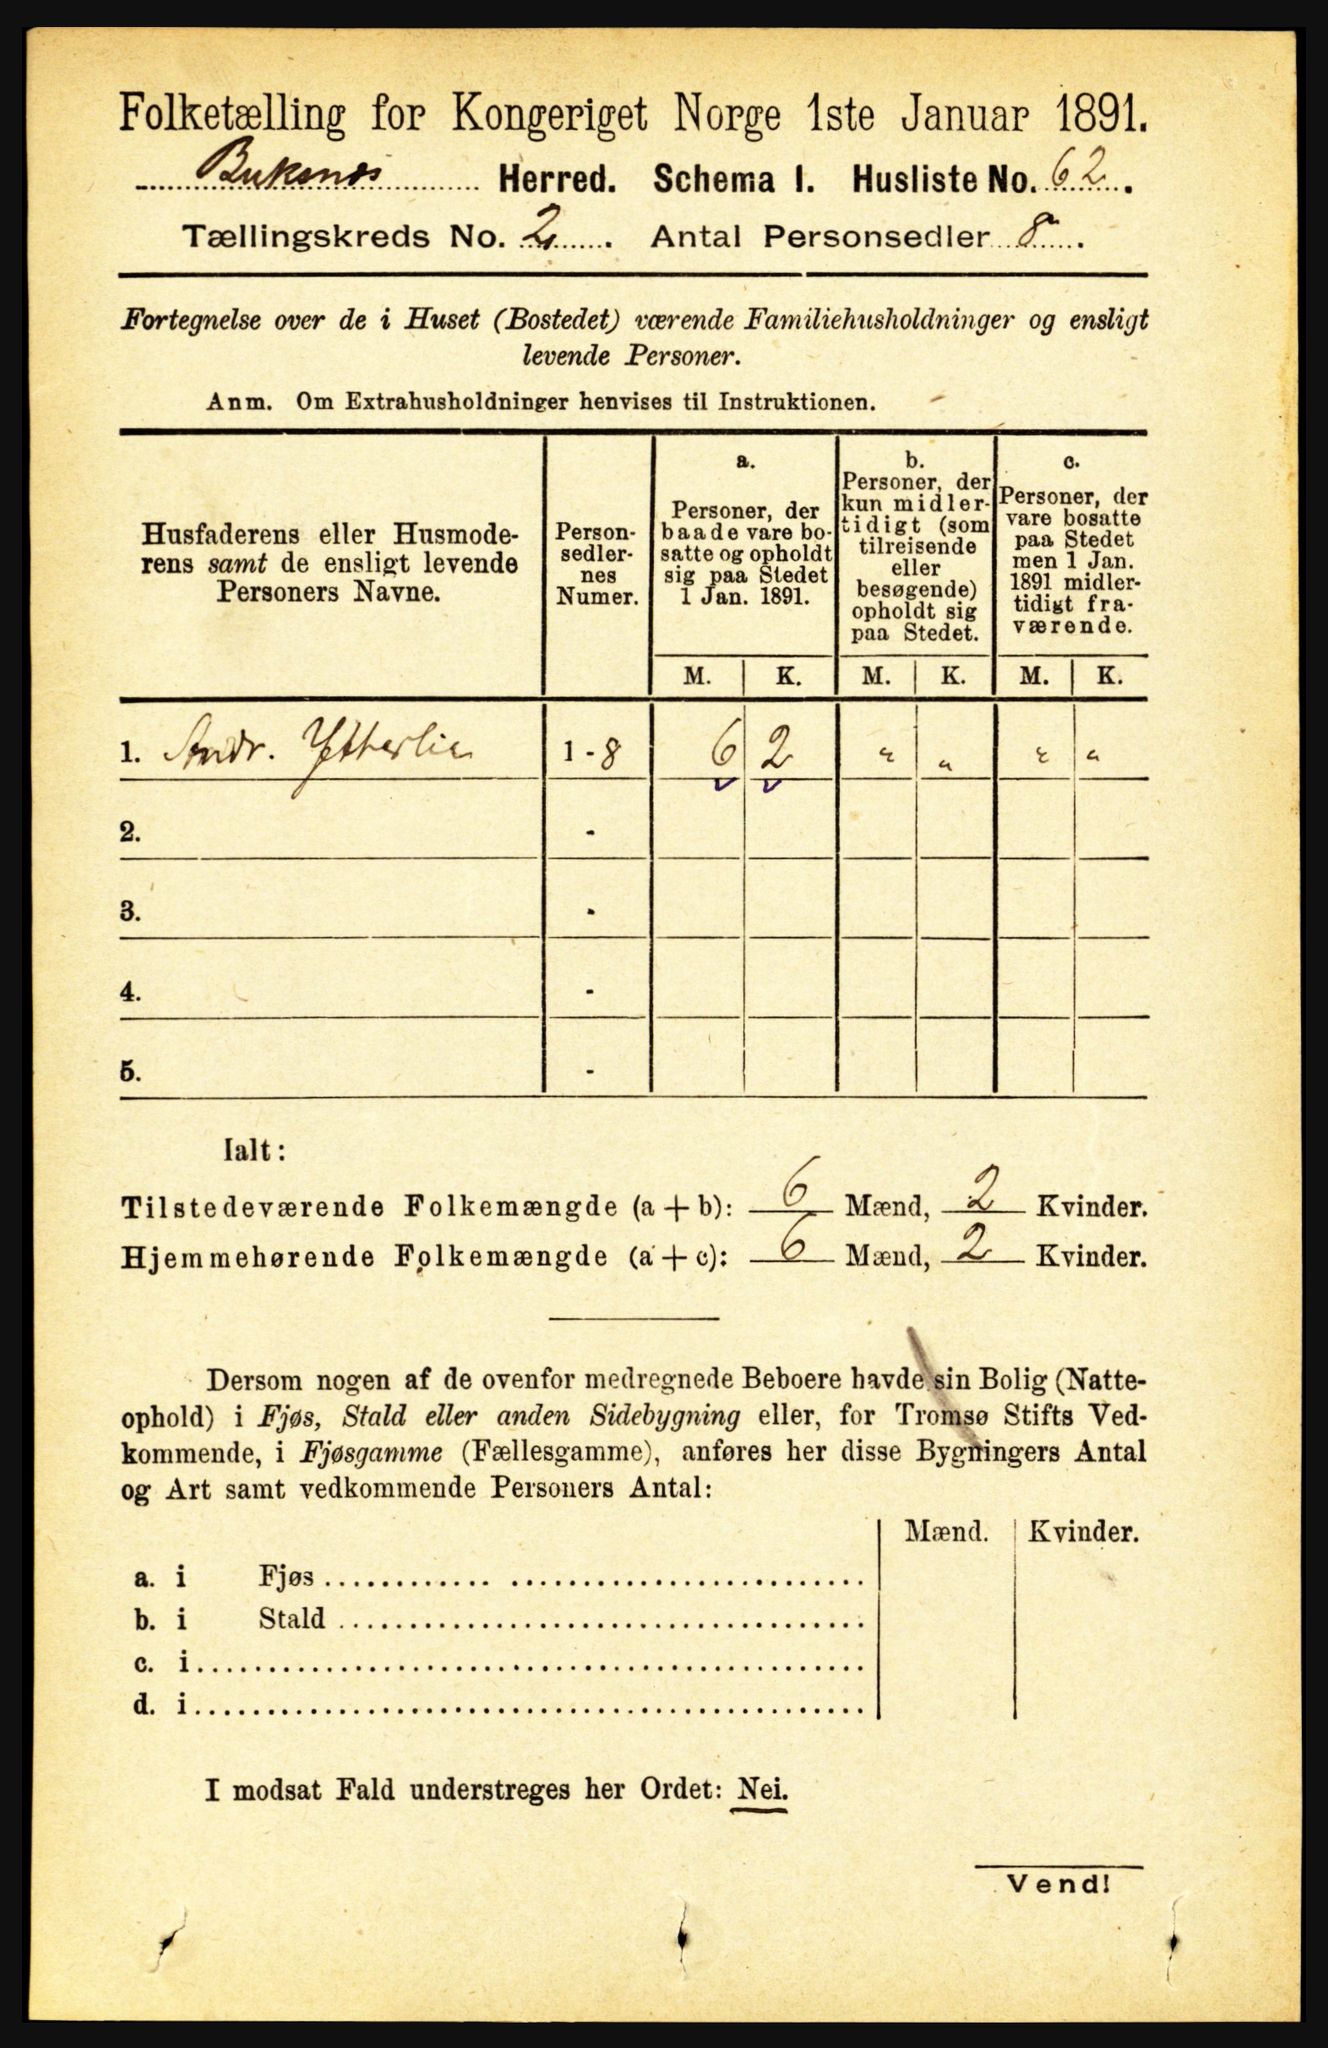 Folketælling for Kongeriget Norge 1ste Januar 1891.
Buksnes Herred. Schema I. Husliste No. 62.
Tællingskreds No. 2. Antal Personsedler 8.
Fortegnelse over de i Huset (Bostedet) værende Familiehusholdninger og ensligt
levende Personer.
Anm. Om Extrahusholdninger henvises til Instruktionen.
Husfaderens eller Husmode-
rens samt de ensligt levende
Personers Navne.
Person-
sedler-
nes
Numer.
a.
Personer, der
baade vare bo-
satte og opholdt
sig paa Stedet
1 Jan. 1891.
b.
Personer, der
kun midler-
tidigt (som
tilreisende
eller
besøgende)
opholdt sig
paa Stedet.
c.
Personer, der
vare bosatte
paa Stedet
men 1 Jan.
1891 midler-
tidigt fra-
værende.
M. K. M. K. M. K.
1. Andr. Ytterlie 1 - 8 6 2 " " " "
2. -
3. -
4. -
5. -
Ialt:
Tilstedeværende Folkemængde (a + b): 6 Mænd, 2 Kvinder.
Hjemmehørende Folkemængde (a + c): 6 Mænd, 2 Kvinder.
Dersom nogen af de ovenfor medregnede Beboere havde sin Bolig (Natte-
ophold) i Fjøs, Stald eller anden Sidebygning eller, for Tromsø Stifts Ved-
kommende, i Fjøsgamme (Fællesgamme), anføres her disse Bygningers Antal
og Art samt vedkommende Personers Antal:
Mænd. Kvinder.
a. i Fjøs
b. i Stald
c. i
d. i
I modsat Fald understreges her Ordet: Nei.
Vend!